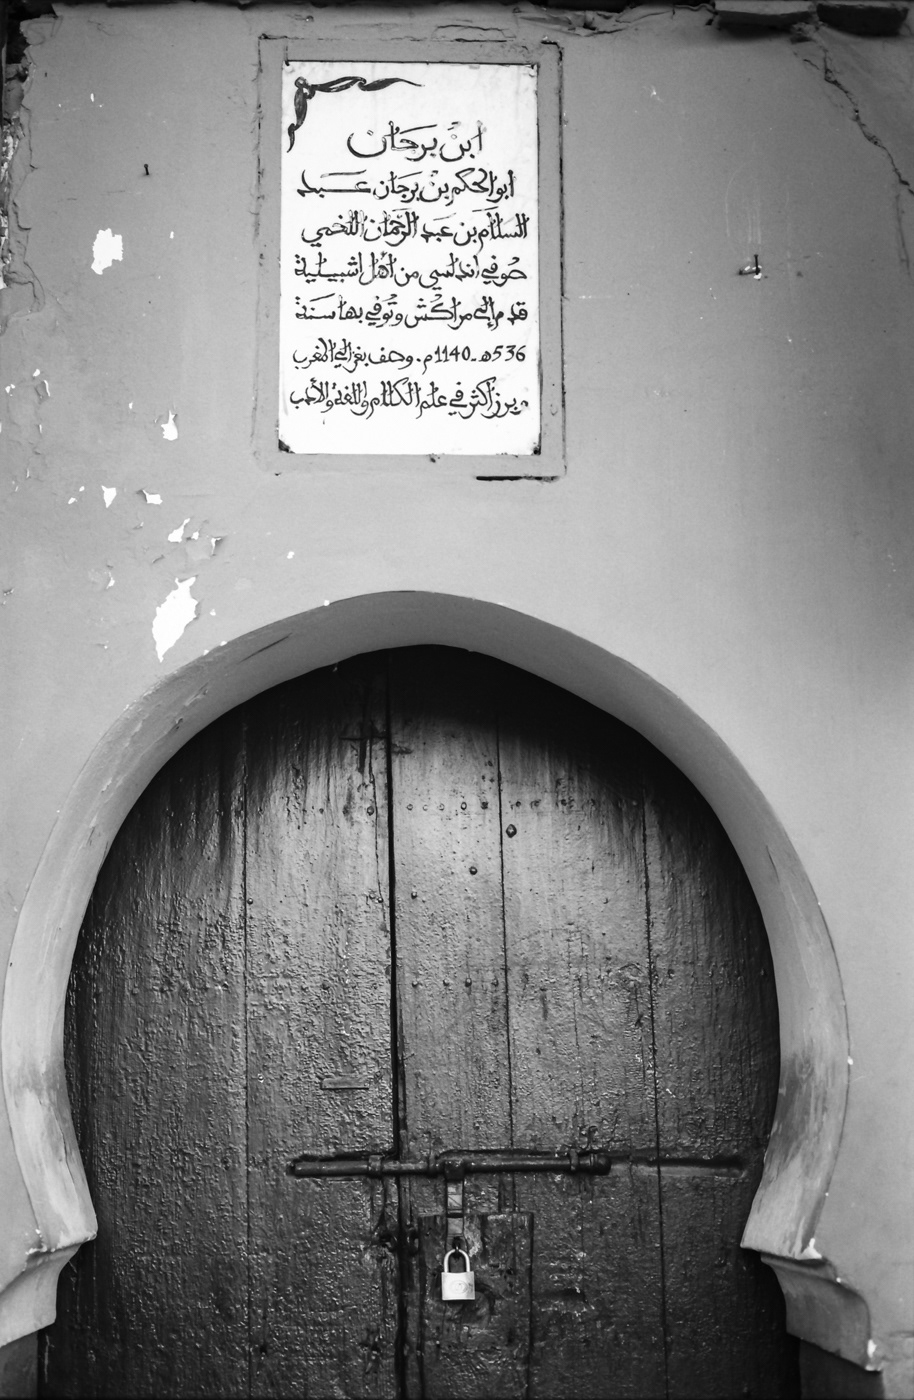 ابن برجان
ابو الحكم بن برجان عبد
السلام بن عبد الرحمان اللخمي
صوفي اندلسي من اهل اشبيلية
قدم إلى مراكش وتوفي بها سنة
536هـ-1140م. وصف بغزالي المغرب
برز اكثر في علم الكلام واللغة والأدب